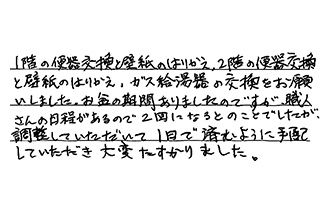 1階の便器交換と壁紙のはりかえ、2階の便器交換
と壁紙のはりかえ、ガス給湯器の交換をお願
いしました。お盆の期間ありましたのですが、職人
さんの日程があるので2回になるとのことでしたが、
調整していただいて1日で済むように手配
していただき大変たすかりました。